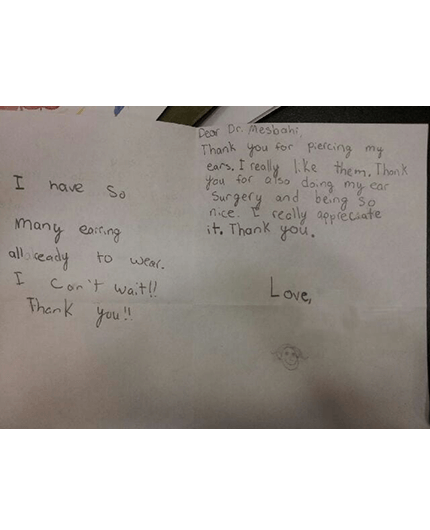 Dear Dr. Mesbahi,
Thank you for piercing my
ears. I really like them. Thank
you for also doing my ear
Surgery and being so
nice. I really appreciate
it. Thank you.
Love,
I have so
many earring
all ready to wear.
I can't wait!!
Thank you!!